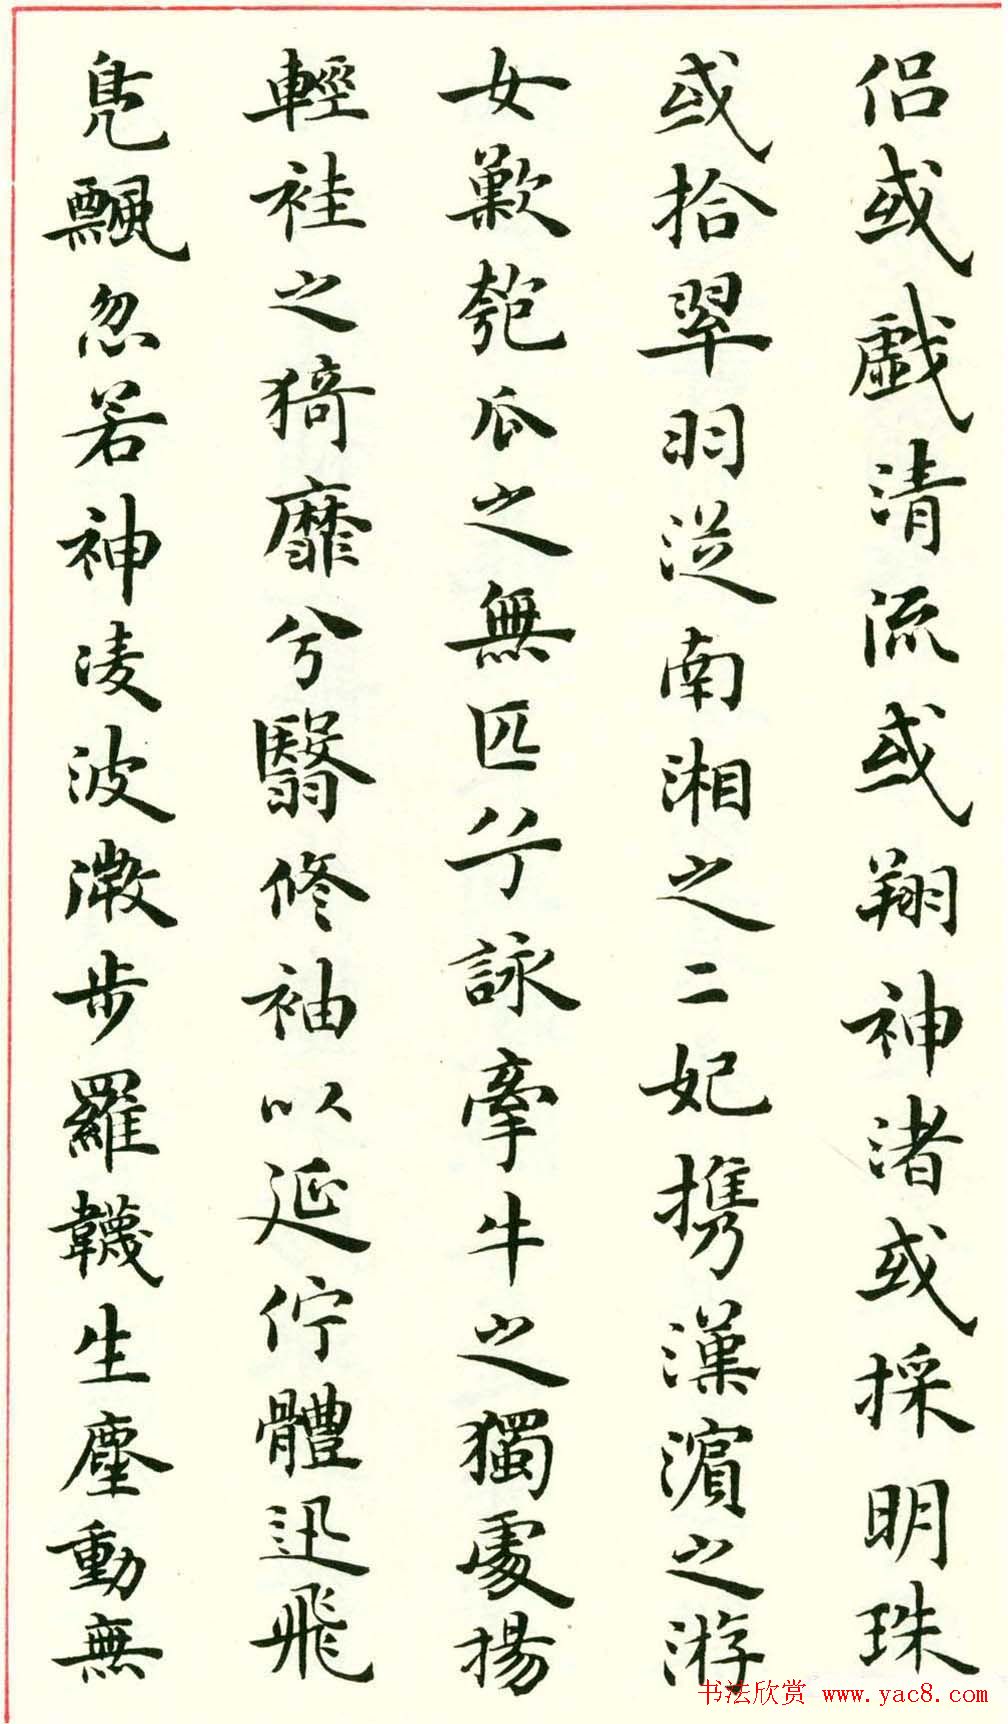 侣或戲清流或翔神渚或採明珠
或拾翠羽從南湘之二妃攜漢濱之游
女歎匏瓜之無匹兮詠牽牛之獨處揚
輕袿之猗靡兮翳修袖以延佇體迅飛
鳧飄忽若神凌波微步羅韈生塵動無
书法欣赏 www.yac8.com